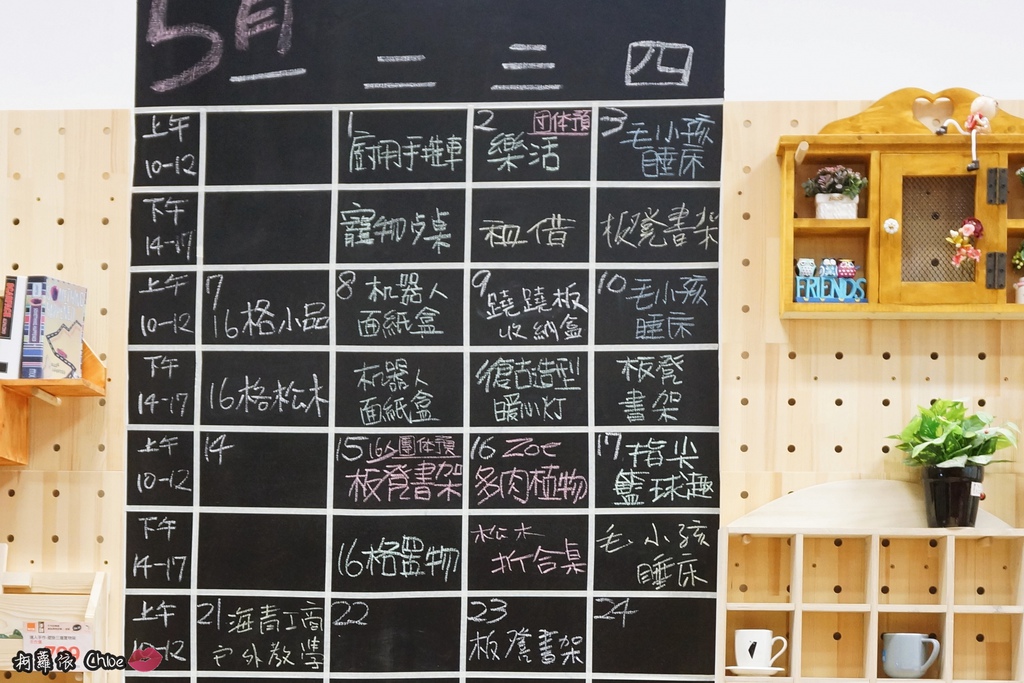 5月
一 二 三 四
上午
10-12
1
廚用手推車
2 团体預
樂活
3 毛小孩
睡床
下午
14-17
寵物夕桌
租借
板凳書架
上午
10-12
7
16格小品
8 机器人
面紙盒
9
蹺蹺板
收納盒
10 毛小孩
睡床
下午
14-17
16格松木
机器人
面紙盒
復古造型
暖心灯
板凳
書架
上午
10-12
14
15 16S團体預
板凳書架
16 Zoe
多肉植物
17 指尖
籃球趣
下午
14-17
16格置物
松木
折合桌
毛小孩
睡床
上午
10-12
21 海青工商
戶外教學
22
23
板凳書架
24
FRIENDS
柯蘿依 Chloe